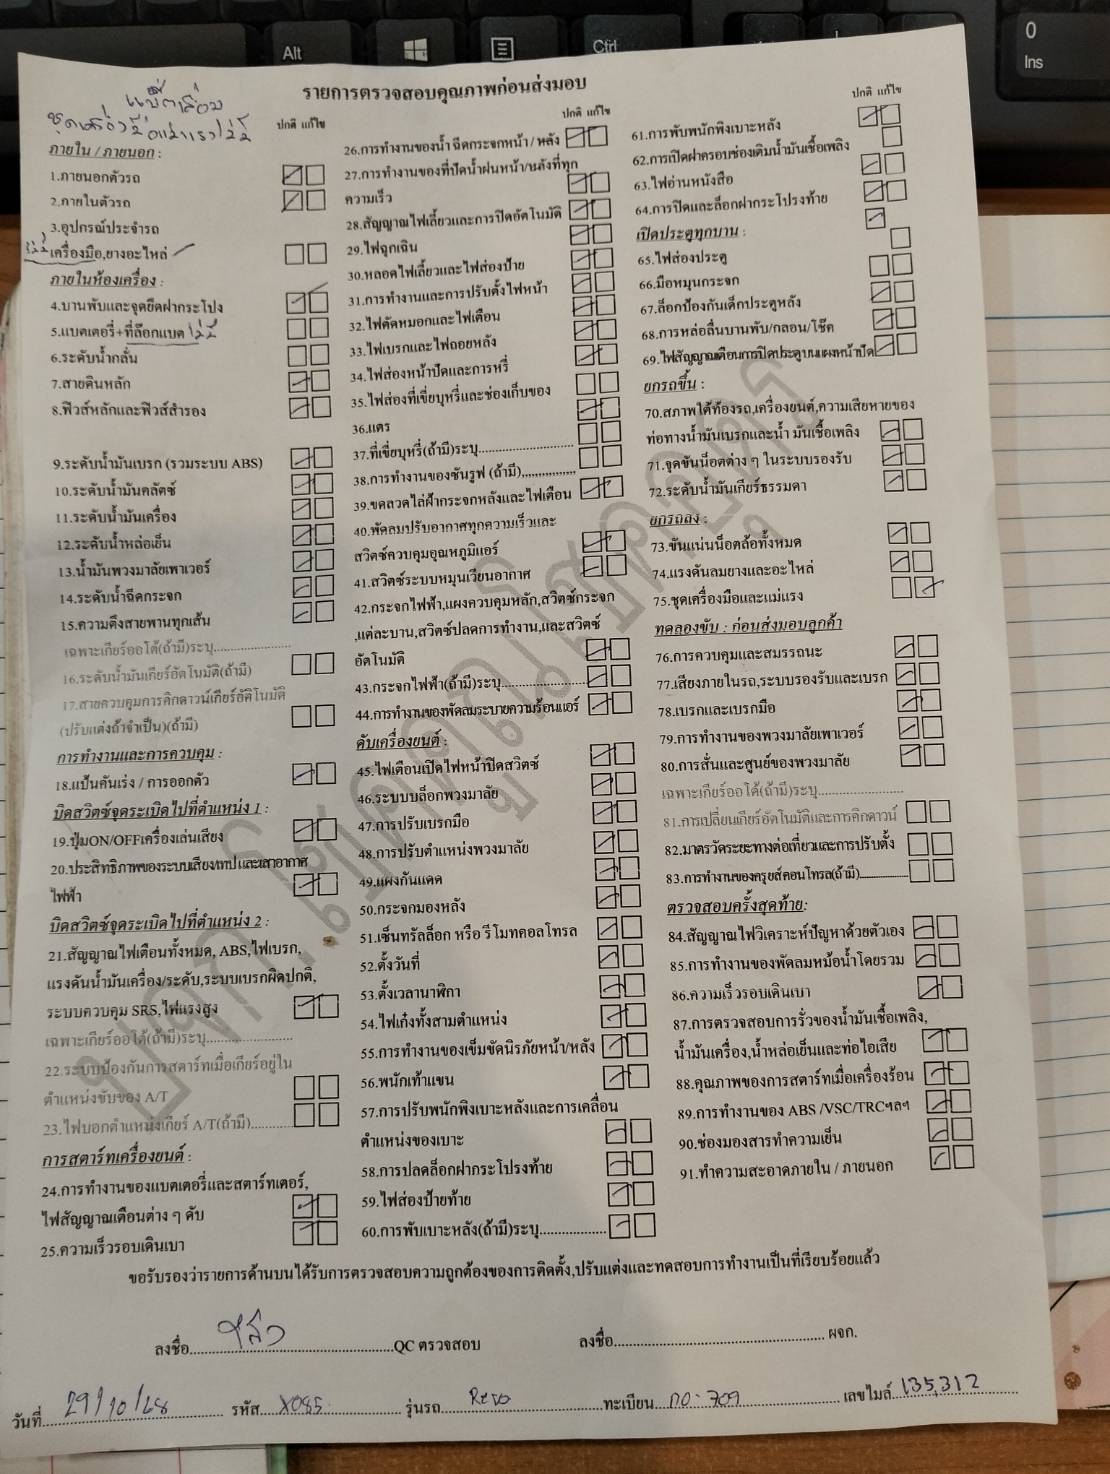 Alt
Ctrl
0
Ins
รายการตรวจสอบคุณภาพก่อนส่งมอบ
แบตเสื่อม
ชุดเครื่องมือแม่แรงไม่มี
ปกติ แก้ไข
ภายใน / ภายนอก :
1.ภายนอกตัวรถ
2.ภายในตัวรถ
3.อุปกรณ์ประจำรถ
ไม่มี เครื่องมือ,ยางอะไหล่
ภายในห้องเครื่อง :
4.บานพับและจุดยึดฝากระโปง
5.แบตเตอรี่+ที่ล๊อกแบต ไม่มี
6.ระดับน้ำกลั่น
7.สายดินหลัก
8.ฟิวส์หลักและฟิวส์สำรอง
9.ระดับน้ำมันเบรก (รวมระบบ ABS)
10.ระดับน้ำมันคลัตช์
11.ระดับน้ำมันเครื่อง
12.ระดับน้ำหล่อเย็น
13.น้ำมันพวงมาลัยเพาเวอร์
14.ระดับน้ำฉีดกระจก
15.ความตึงสายพานทุกเส้น
เฉพาะเกียร์ออโต้(ถ้ามี)ระบุ
16.ระดับน้ำมันเกียร์อัตโนมัติ(ถ้ามี)
17.สายควบคุมการคิกดาวน์เกียร์อัติโนมัติ
(ปรับแต่งถ้าจำเป็น)(ถ้ามี)
การทำงานและการควบคุม :
18.แป้นคันเร่ง / การออกตัว
บิดสวิตซ์จุดระเบิดไปที่ตำแหน่ง 1 :
19.ปุ่มON/OFFเครื่องเล่นเสียง
20.ประสิทธิภาพของระบบเสียง/เทป และเสาอากาศ
ไฟฟ้า
บิดสวิตซ์จุดระเบิดไปที่ตำแหน่ง 2 :
21.สัญญาณไฟเตือนทั้งหมด, ABS,ไฟเบรก,
แรงดันน้ำมันเครื่อง/ระดับ,ระบบเบรกผิดปกติ,
ระบบควบคุม SRS,ไฟแรงสูง
เฉพาะเกียร์ออโต้(ถ้ามี)ระบุ
22.ระบบป้องกันการสตาร์ทเมื่อเกียร์อยู่ใน
ตำแหน่งขับของ A/T
23.ไฟบอกตำแหน่งเกียร์ A/T(ถ้ามี)
การสตาร์ทเครื่องยนต์ :
24.การทำงานของแบตเตอรี่และสตาร์ทเตอร์,
ไฟสัญญาณเตือนต่าง ๆ ดับ
25.ความเร็วรอบเดินเบา
ปกติ แก้ไข
26.การทำงานของน้ำฉีดกระจกหน้า / หลัง
27.การทำงานของที่ปัดน้ำฝนหน้า/หลังที่ทุก
ความเร็ว
28.สัญญาณไฟเลี้ยวและการปิดอัตโนมัติ
29.ไฟฉุกเฉิน
30.หลอดไฟเลี้ยวและไฟส่องป้าย
31.การทำงานและการปรับตั้งไฟหน้า
32.ไฟตัดหมอกและไฟเตือน
33.ไฟเบรกและไฟถอยหลัง
34.ไฟส่องหน้าปัดและการหรี่
35.ไฟส่องที่เขี่ยบุหรี่และช่องเก็บของ
36.แตร
37.ที่เขี่ยบุหรี่(ถ้ามี)ระบุ
38.การทำงานของซันรูฟ (ถ้ามี)
39.ขดลวดไล่ฝ้ากระจกหลังและไฟเตือน
40.พัดลมปรับอากาศทุกความเร็วและ
สวิตซ์ควบคุมอุณหภูมิแอร์
41.สวิตซ์ระบบหมุนเวียนอากาศ
42.กระจกไฟฟ้า,แผงควบคุมหลัก,สวิตซ์กระจก
,แต่ละบาน,สวิตซ์ปลดการทำงาน,และสวิตซ์
อัตโนมัติ
43.กระจกไฟฟ้า(ถ้ามี)ระบุ
44.การทำงานของพัดลมระบายความร้อนแอร์
ดับเครื่องยนต์ :
45.ไฟเตือนเปิดไฟหน้าปิดสวิตซ์
46.ระบบบล็อกพวงมาลัย
47.การปรับเบรกมือ
48.การปรับตำแหน่งพวงมาลัย
49.แผงกันแดด
50.กระจกมองหลัง
51.เซ็นทรัลล็อก หรือ รีโมทคอลโทรล
52.ตั้งวันที่
53.ตั้งเวลานาฬิกา
54.ไฟเก๋งทั้งสามตำแหน่ง
55.การทำงานของเข็มขัดนิรภัยหน้า/หลัง
56.พนักเท้าแขน
57.การปรับพนักพิงเบาะหลังและการเคลื่อน
ตำแหน่งของเบาะ
58.การปลดล็อกฝากระโปรงท้าย
59.ไฟส่องป้ายท้าย
60.การพับเบาะหลัง(ถ้ามี)ระบุ
ปกติ แก้ไข
61.การพับพนักพิงเบาะหลัง
62.การเปิดฝาครอบช่องเติมน้ำมันเชื้อเพลิง
63.ไฟอ่านหนังสือ
64.การปิดและล็อกฝากระโปรงท้าย
เปิดประตูทุกบาน :
65.ไฟส่องประตู
66.มือหมุนกระจก
67.ล็อกป้องกันเด็กประตูหลัง
68.การหล่อลื่นบานพับ/กลอน/โช๊ค
69.ไฟสัญญาณเตือนการปิดประตูบนแผงหน้าปัด
ยกรถขึ้น :
70.สภาพใต้ท้องรถ,เครื่องยนต์,ความเสียหายของ
ท่อทางน้ำมันเบรกและน้ำมันเชื้อเพลิง
71.จุดขันน็อตต่าง ๆ ในระบบรองรับ
72.ระดับน้ำมันเกียร์ธรรมดา
ยกรถลง :
73.ขันแน่นน็อตล้อทั้งหมด
74.แรงดันลมยางและอะไหล่
75.ชุดเครื่องมือและแม่แรง
ทดลองขับ : ก่อนส่งมอบลูกค้า
76.การควบคุมและสมรรถนะ
77.เสียงภายในรถ,ระบบรองรับและเบรก
78.เบรกและเบรกมือ
79.การทำงานของพวงมาลัยเพาเวอร์
80.การสั่นและศูนย์ของพวงมาลัย
เฉพาะเกียร์ออโต้(ถ้ามี)ระบุ
81.การเปลี่ยนเกียร์อัตโนมัติและการคิกดาวน์
82.มาตรวัดระยะทางต่อเที่ยวและการปรับตั้ง
83.การทำงานของครุยส์คอนโทรล(ถ้ามี)
ตรวจสอบครั้งสุดท้าย:
84.สัญญาณไฟวิเคราะห์ปัญหาด้วยตัวเอง
85.การทำงานของพัดลมหม้อน้ำโดยรวม
86.ความเร็วรอบเดินเบา
87.การตรวจสอบการรั่วของน้ำมันเชื้อเพลิง,
น้ำมันเครื่อง,น้ำหล่อเย็นและท่อไอเสีย
88.คุณภาพของการสตาร์ทเมื่อเครื่องร้อน
89.การทำงานของ ABS /VSC/TRCฯลฯ
90.ช่องมองสารทำความเย็น
91.ทำความสะอาดภายใน / ภายนอก
ขอรับรองว่ารายการด้านบนได้รับการตรวจสอบความถูกต้องของการติดตั้ง,ปรับแต่งและทดสอบการทำงานเป็นที่เรียบร้อยแล้ว
ลงชื่อ QC ตรวจสอบ ลงชื่อ ผจก.
วันที่ 29/10/68 รหัส X085 รุ่นรถ Revo ทะเบียน ถอ-709 เลขไมล์ 135,312